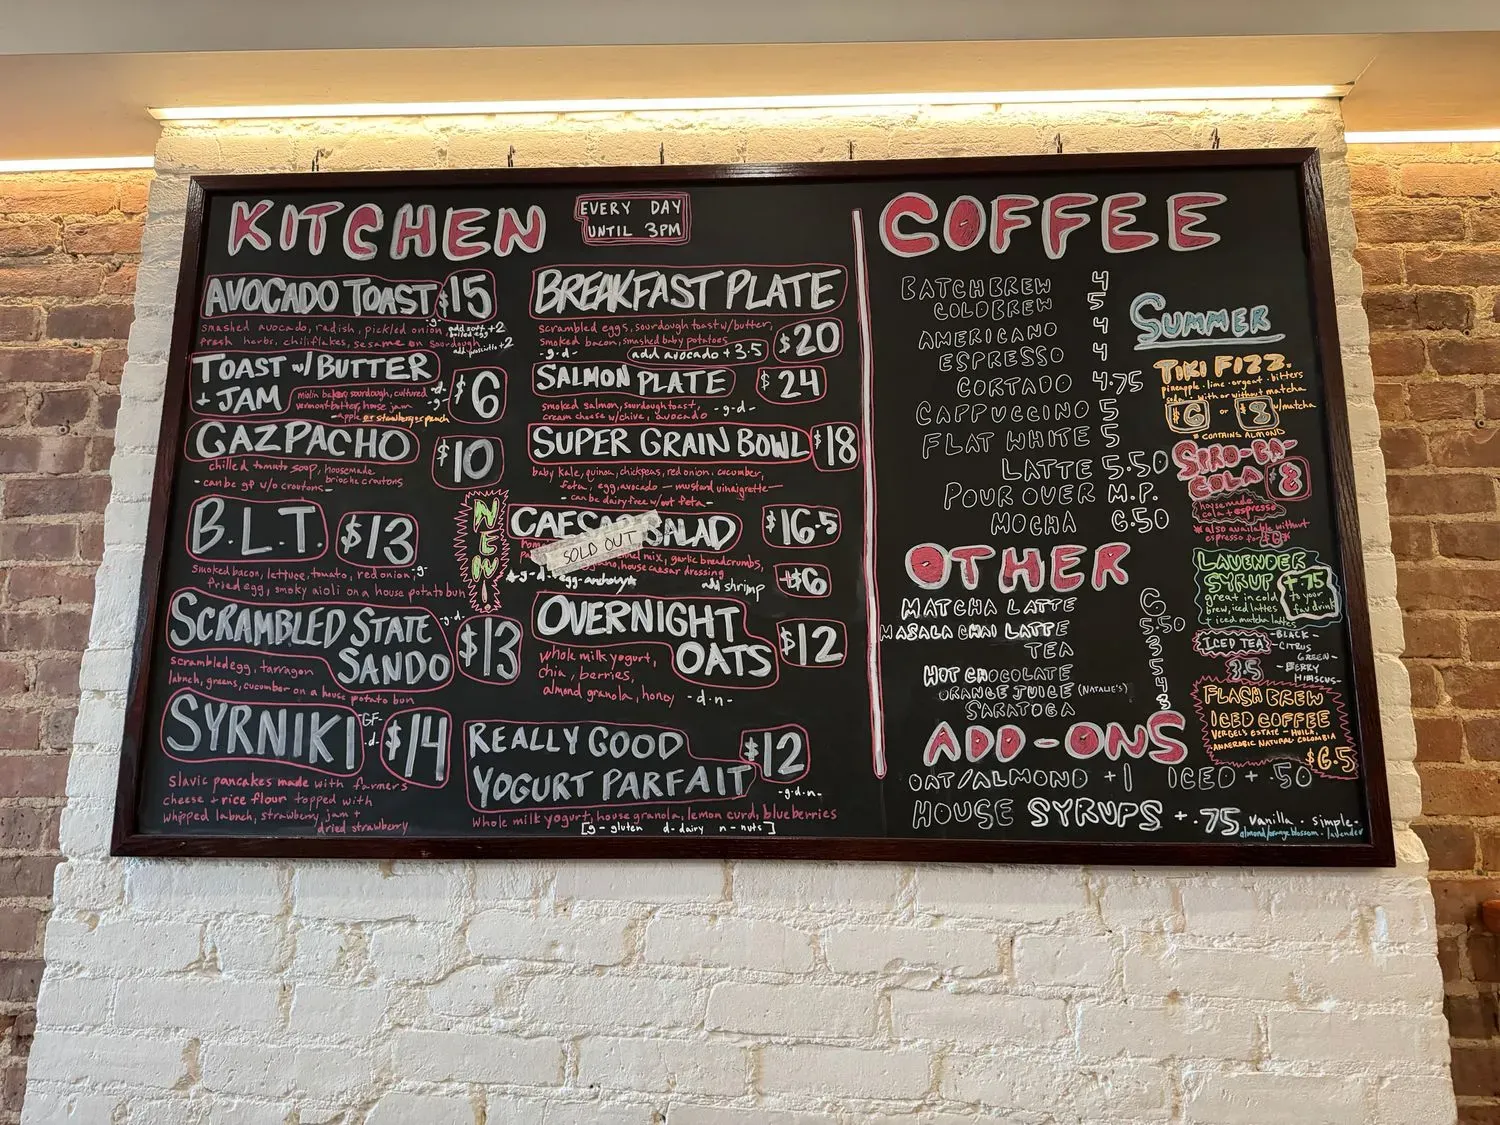 KITCHEN
EVERY DAY
UNTIL 3PM
AVOCADO TOAST $15
smashed avocado, radish, pickled onion,
fresh herbs, chiliflakes, sesame on sourdough
-g-
add soft +2
boiled egg
add prosciutto +2
TOAST w/ BUTTER
+ JAM
$6
bakery sourdough, cultured
vermont butter, house jam
-apple or strawberry peach
-d-
-g-
GAZPACHO
$10
chilled tomato soup, housemade
brioche croutons
-can be gf w/o croutons-
B.L.T. $13
smoked bacon, lettuce, tomato, red onion,
-g-
fried egg, smoky aioli on a house potato bun
SCRAMBLED STATE
SANDO
-g-d-
$13
scrambled egg, tarragon
labneh, greens, cucumber on a house potato bun
SYRNIKI
-GF-
-d-
$14
slavic pancakes made with farmer's
cheese + rice flour topped with
whipped labneh, strawberry jam +
dried strawberry
BREAKFAST PLATE
scrambled eggs, sourdough toast w/ butter,
smoked bacon, smashed baby potatoes
-g-d-
add avocado +3.5
$20
SALMON PLATE $24
smoked salmon, sourdough toast,
cream cheese w/ chive, avocado
-g-d-
SUPER GRAIN BOWL $18
baby kale, quinoa, chickpeas, red onion, cucumber,
feta, egg, avocado — mustard vinaigrette —
-can be dairy free w/out feta-
NEW!
CAESAR SALAD $16.5
SOLD OUT
mix, garlic breadcrumbs,
house caesar dressing
-g-d-egg-anchovy
add shrimp +$6
OVERNIGHT
OATS
$12
whole milk yogurt,
chia, berries,
almond granola, honey
-d-n-
REALLY GOOD
YOGURT PARFAIT
$12
-g-d-n-
whole milk yogurt, house granola, lemon curd, blueberries
[g-gluten d-dairy n-nuts]
COFFEE
BATCH BREW 4
COLD BREW 5
AMERICANO 4
ESPRESSO 4
CORTADO 4.75
CAPPUCCINO 5
FLAT WHITE 5
LATTE 5.50
POUR OVER M.P.
MOCHA 6.50
OTHER
MATCHA LATTE 6
MASALA CHAI LATTE 5.50
TEA 3
HOT CHOCOLATE 5
ORANGE JUICE (NATALIE'S)
SARATOGA
ADD-ONS
OAT/ALMOND +1 ICED + .50
HOUSE SYRUPS + .75 vanilla · simple-
almond/orange blossom · lavender
SUMMER
TIKI FIZZ.
pineapple · lime · orgeat · bitters
soda · with or without matcha
$6 or $8 w/matcha
* CONTAINS ALMOND
SIRO-BA-
COLA
$8
housemade
cola + espresso
* also available without
espresso for $6*
LAVENDER
SYRUP
+.75
to your
fav drink
great in cold
brew, iced lattes
+ iced matcha lattes
ICED TEA
3.5
-BLACK-
-CITRUS
GREEN-
-BERRY
HIBISCUS-
FLASH BREW
ICED COFFEE
VERGEL'S ESTATE - HUILA,
ANAEROBIC NATURAL COLOMBIA
$6.5